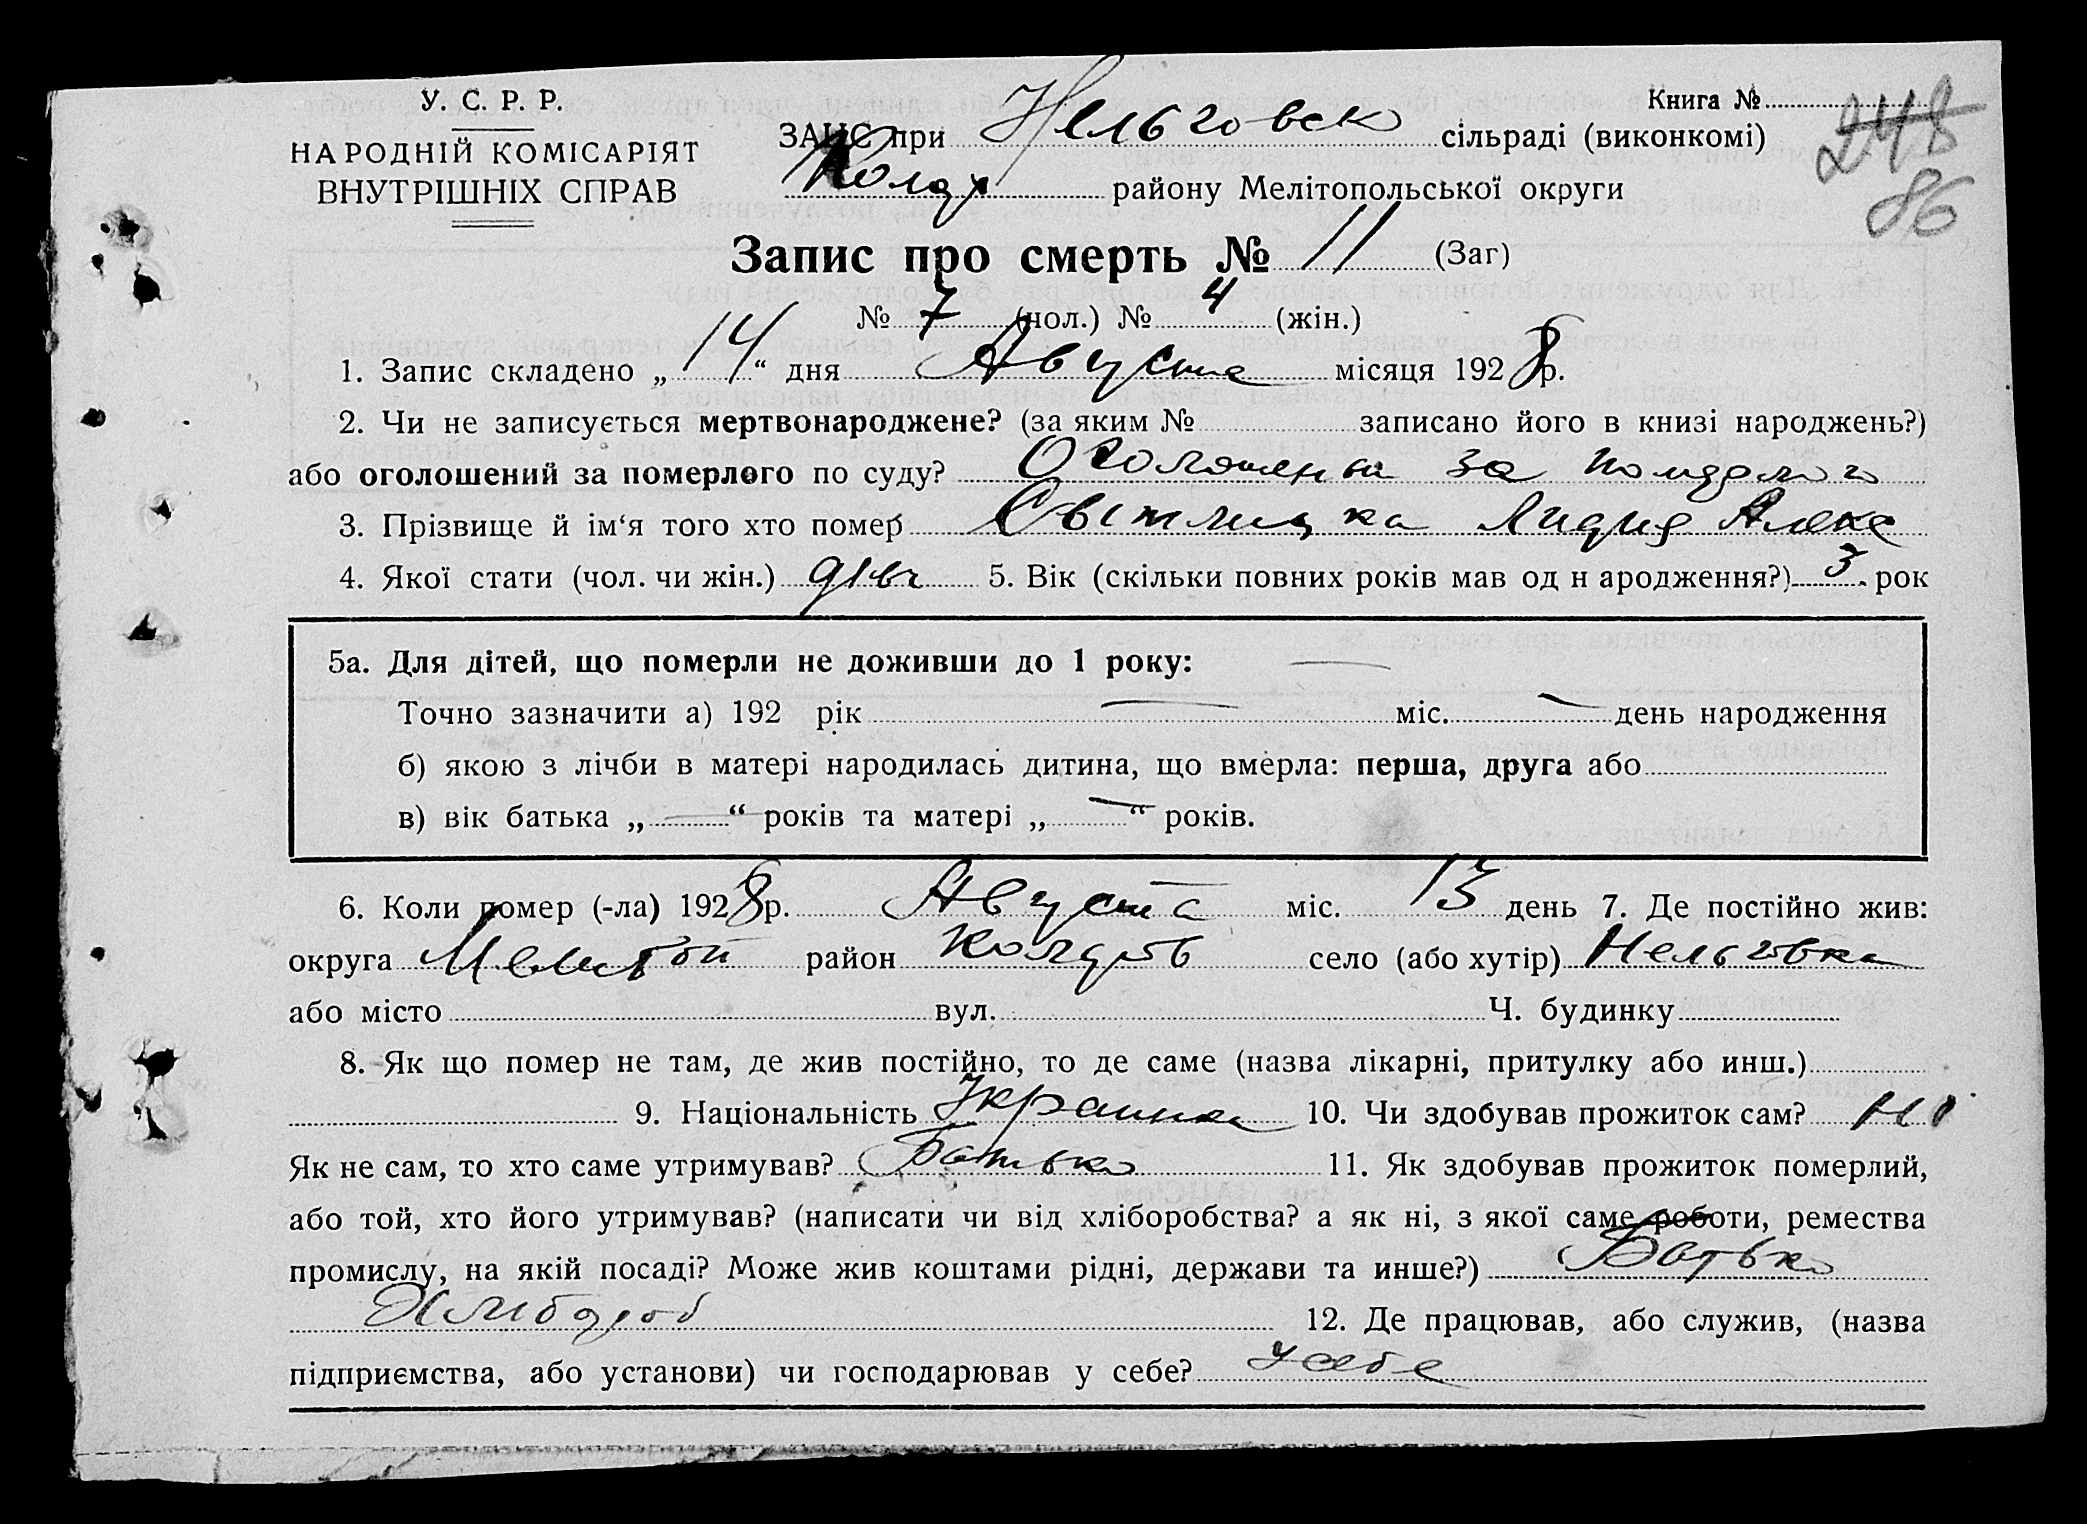 У. С. Р. Р.
НАРОДНІЙ КОМІСАРІЯТ
ВНУТРІШНІХ СПРАВ
Книга №
248
86
ЗАЦС при Нельговско сільраді (виконкомі)
району Мелітопольської округи
Запис про смерть № 11 (Заг)
№ 7 (чол.) № 4 (жін.)
1. Запис складено „14“ дня Августа місяця 1928 р.
2. Чи не записується мертвонароджене? (за яким № записано його в книзі народжень?)
або оголошений за померлого по суду? за
3. Прізвище й ім‘я того хто помер Свытлицка Лидия Алекс
4. Якої стати (чол. чи жін.) 5. Вік (скільки повних років мав од н ародження?) 3 рок
5а. Для дітей, що померли не доживши до 1 року: —
Точно зазначити а) 192 рік — міс. — день народження
б) якою з лічби в матері народилась дитина, що вмерла: перша, друга або
в) вік батька „—“ років та матері „—“ років.
6. Коли помер (-ла) 1928 р. Августа міс. 13 день 7. Де постійно жив:
округа район село (або хутір) Нельговка
або місто вул. Ч. будинку
8. Як що помер не там, де жив постійно, то де саме (назва лікарні, притулку або инш.)
9. Національність Украинка 10. Чи здобував прожиток сам? Ні
Як не сам, то хто саме утримував? Батько 11. Як здобував прожиток померлий,
або той, хто його утримував? (написати чи від хліборобства? а як ні, з якої саме роботи, ремества
промислу, на якій посаді? Може жив коштами рідні, держави та инше?) Батько
Хлибороб 12. Де працював, або служив, (назва
підприємства, або установи) чи господарював у себе? у себе